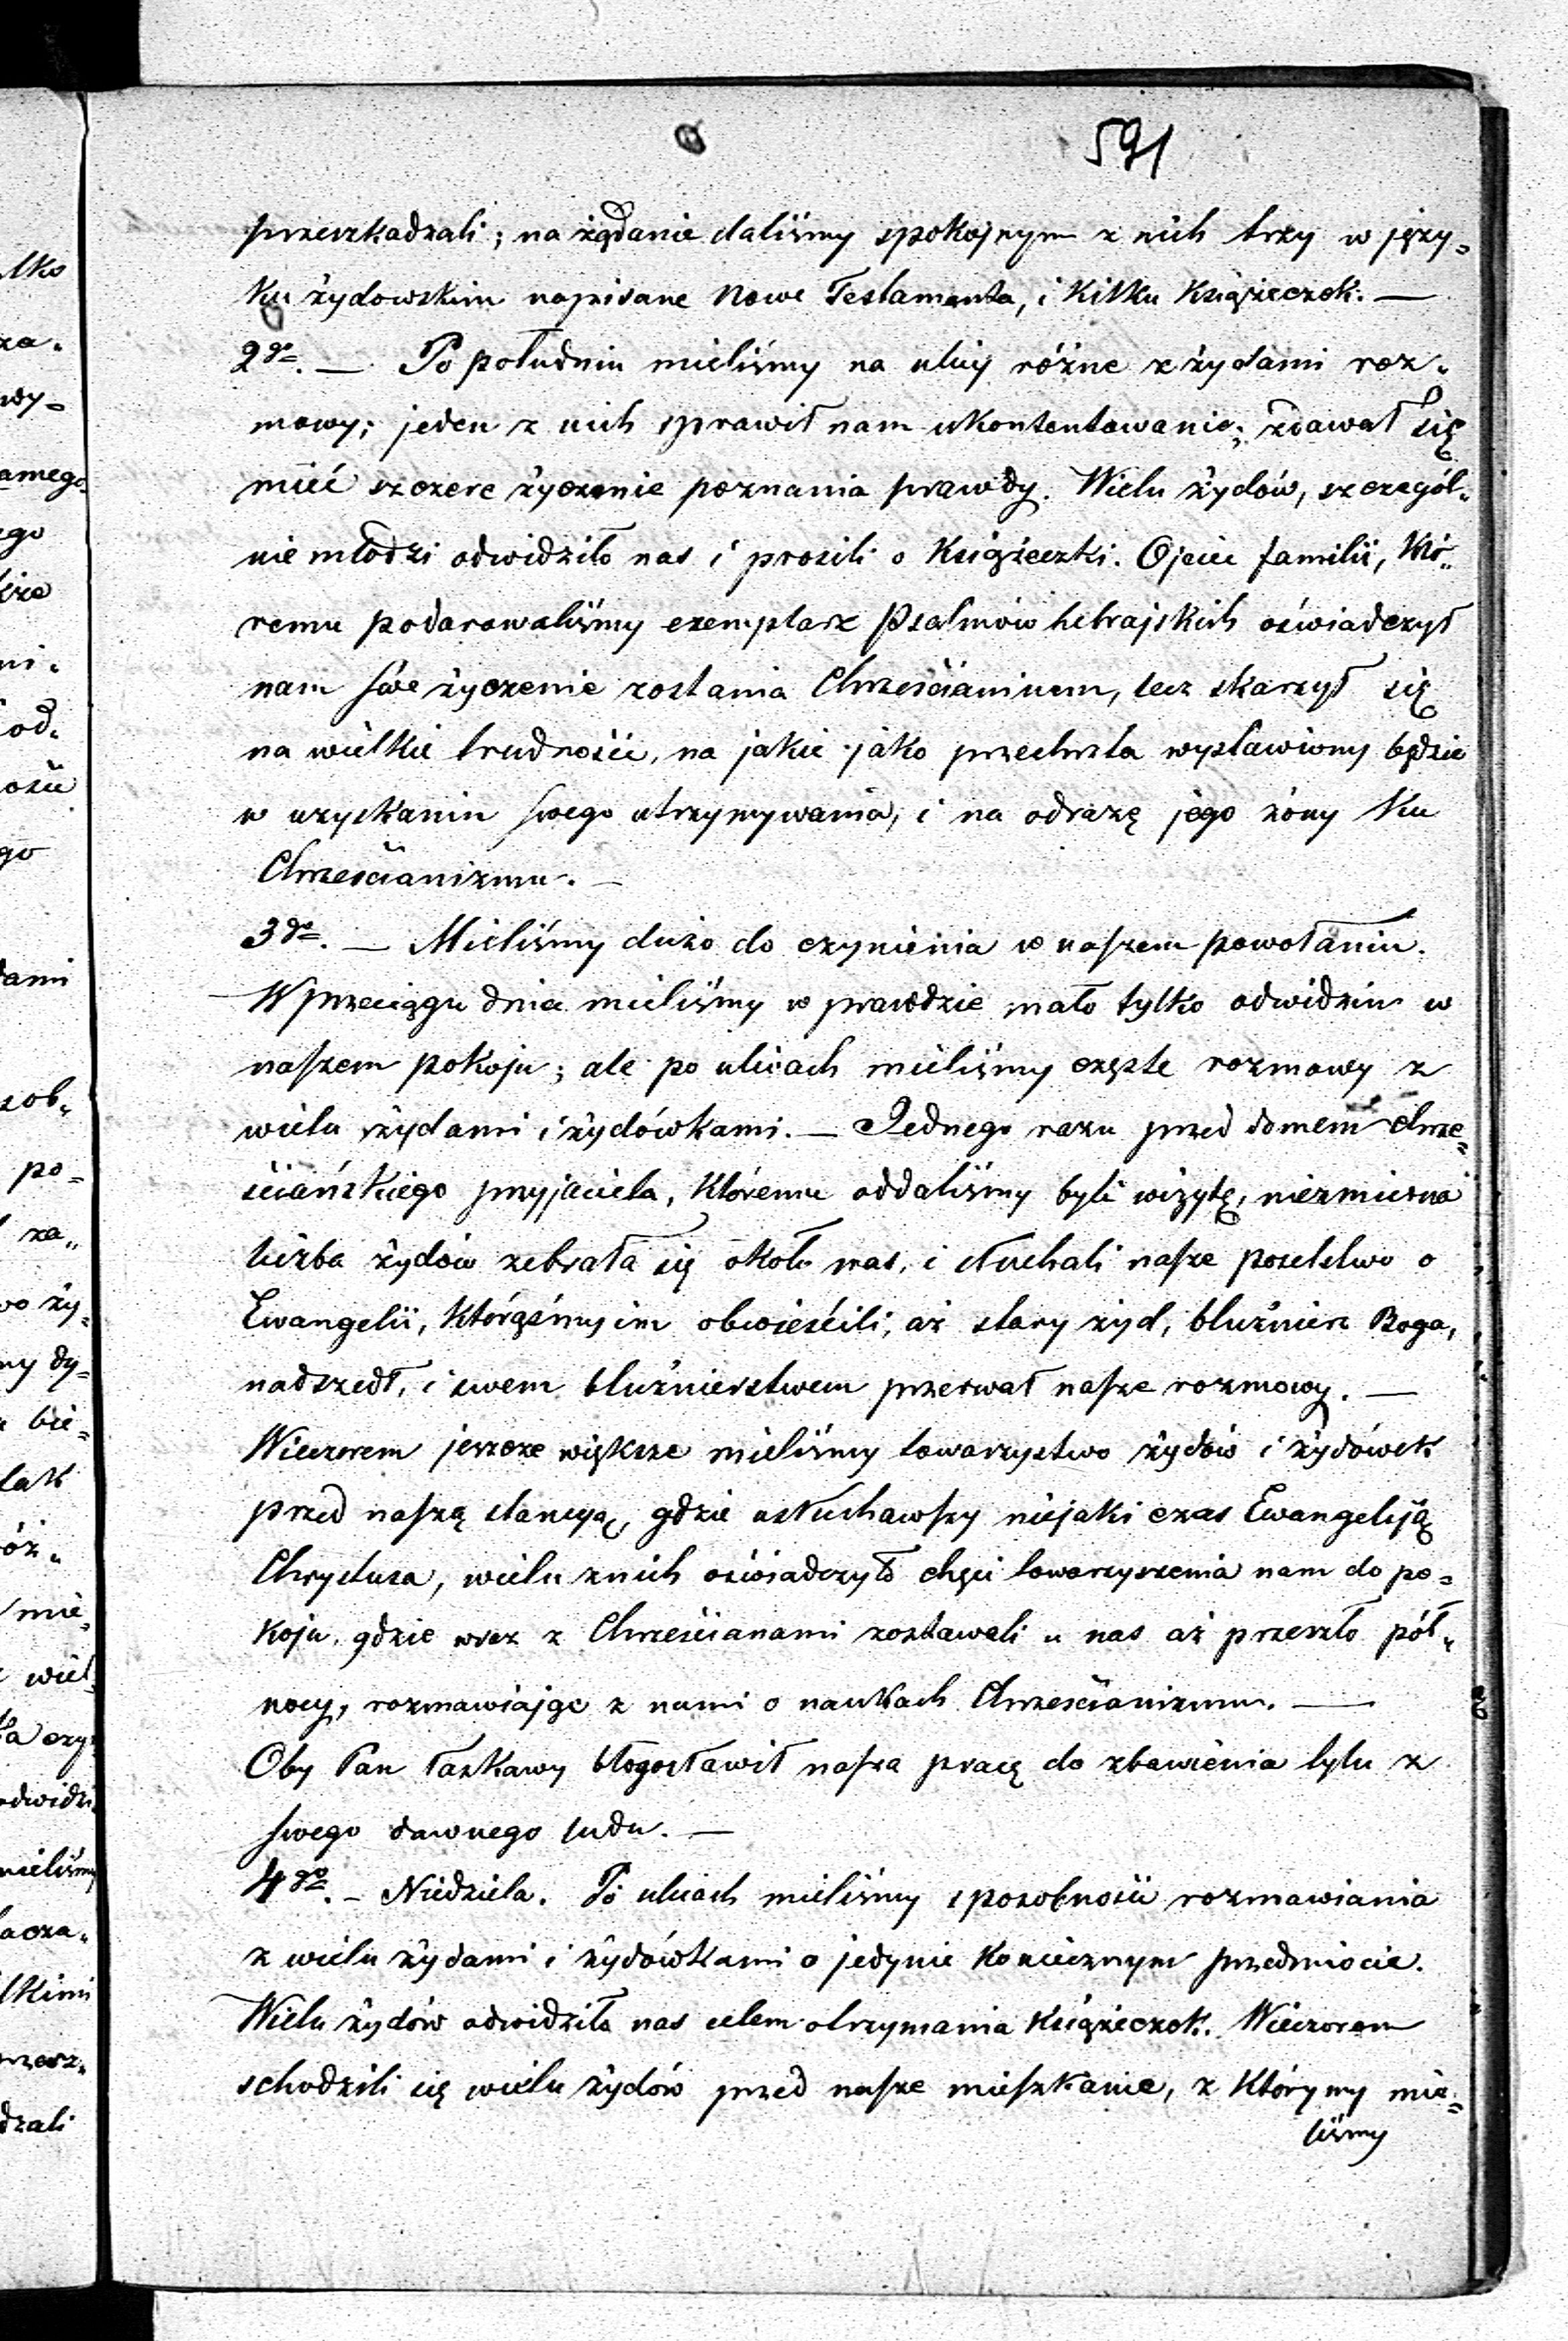 591
przeszkadzali; na żądanie daliśmy spokojnym z nich trzy w języ=
ku żydowskim napisane Nowe Testamenta, i kilku książeczek. —
2go. — Po południu mieliśmy na ulicy różne z żydami roz=
mowy; jeden z nich sprawił nam ukontentowanie; zdawał się
mieć szczere życzenie poznania prawdy. Wielu żydów, szczegól=
nie młodzi odwidziło nas i prosili o książeczki. Ojciec familii, któ=
remu podarowaliśmy exemplarz Psalmów hebrajskich oświadczył
nam swe życzenie zostania Chrześcianinem, lecz skarzył się
na wielkie trudności, na jakie jako przechrzta wystawiony będzie
w uzyskaniu swego utrzymywania, i na odrazę jego żony ku
Chrześcianizmu. —
3go. — Mieliśmy dużo do czynienia w naszem powołaniu.
W przeciągu dnia mieliśmy w prawdzie mało tylko odwidzin w
naszem pokoju; ale po ulicach mieliśmy częste rozmowy z
wielu żydami i żydówkami. — Jednego razu przed domem chrze=
ściańskiego przyjaciela, któremu oddaliśmy byli wizytę, niezmierna
liczba żydów zebrała się około nas, i słuchali nasze poselstwo o
Ewangelii, którąśmy im obwieścili, aż stary żyd, bluźnierz Boga,
nadszedł, i swem bluźnierstwem przerwał nasze rozmowy. —
Wieczorem jeszcze większe mieliśmy towarzystwo żydów i żydówek
przed naszą stancyą, gdzie usłuchawszy niejaki czas Ewangeliją
Chrystusa, wielu z nich oświadczyło chęci towarzyszenia nam do po=
koju, gdzie wraz z Chrześcianami zostawali u nas aż przeszło pół=
nocy, rozmawiając z nami o naukach Chrześcianizmu. —
Oby Pan łaskawy błogosławił nasza pracę do zbawienia tylu z
swego dawnego ludu. —
4go. — Niedziela. Po ulicach mieliśmy sposobności rozmawiania
z wielu żydami i żydówkami o jedynie koniecznym przedmiocie.
Wielu żydów odwidziło nas celem otrzymania książeczek. Wieczorem
schodzili się wielu żydów przed nasze mieszkanie, z którymy mie=
liśmy